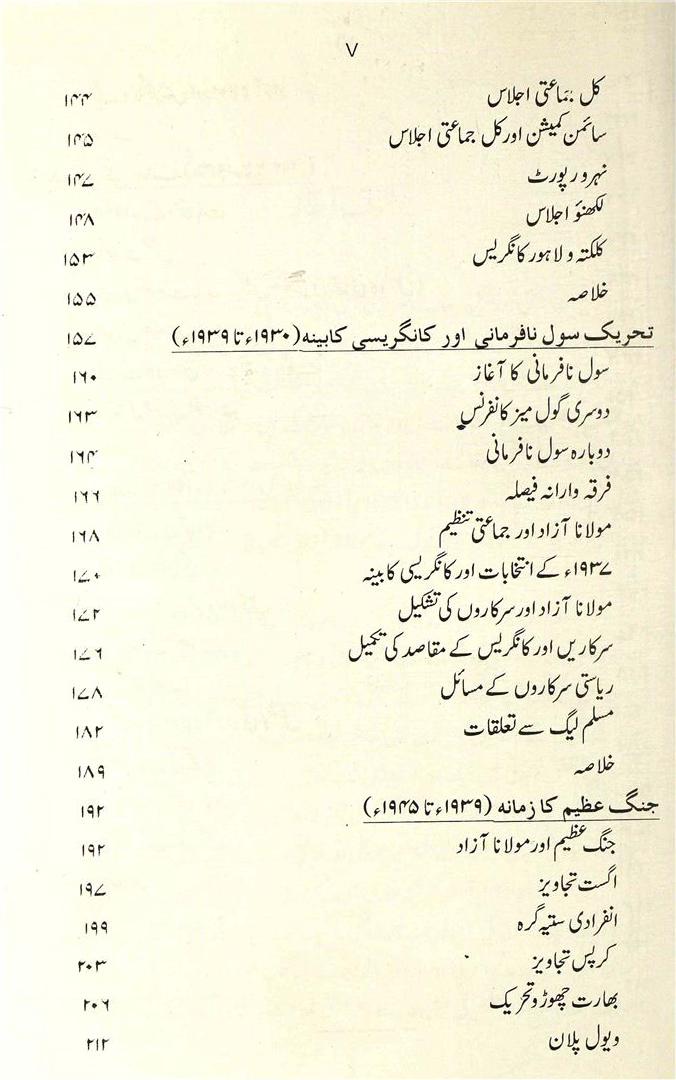 ۷
کل جماعتی اجلاس ۱۴۴
سائمن کمیشن اور کل جماعتی اجلاس ۱۴۵
نہرو رپورٹ ۱۴۷
لکھنؤ اجلاس ۱۴۸
کلکتہ و لاہور کانگریس ۱۵۳
خلاصہ ۱۵۵
تحریک سول نافرمانی اور کانگریسی کابینہ (۱۹۳۰ء تا ۱۹۳۹ء) ۱۵۷
سول نافرمانی کا آغاز ۱۶۰
دوسری گول میز کانفرنس ۱۶۳
دوبارہ سول نافرمانی ۱۶۴
فرقہ وارانہ فیصلہ ۱۶۶
مولانا آزاد اور جماعتی تنظیم ۱۶۸
۱۹۳۷ء کے انتخابات اور کانگریسی کابینہ ۱۷۰
مولانا آزاد اور سرکاروں کی تشکیل ۱۷۲
سرکاریں اور کانگریس کے مقاصد کی تکمیل ۱۷۶
ریاستی سرکاروں کے مسائل ۱۷۸
مسلم لیگ سے تعلقات ۱۸۲
خلاصہ ۱۸۹
جنگ عظیم کا زمانہ (۱۹۳۹ء تا ۱۹۴۵ء) ۱۹۲
جنگ عظیم اور مولانا آزاد ۱۹۲
اگست تجاویز ۱۹۷
انفرادی ستیہ گرہ ۱۹۹
کرپس تجاویز ۲۰۳
بھارت چھوڑو تحریک ۲۰۶
ویول پلان ۲۱۲